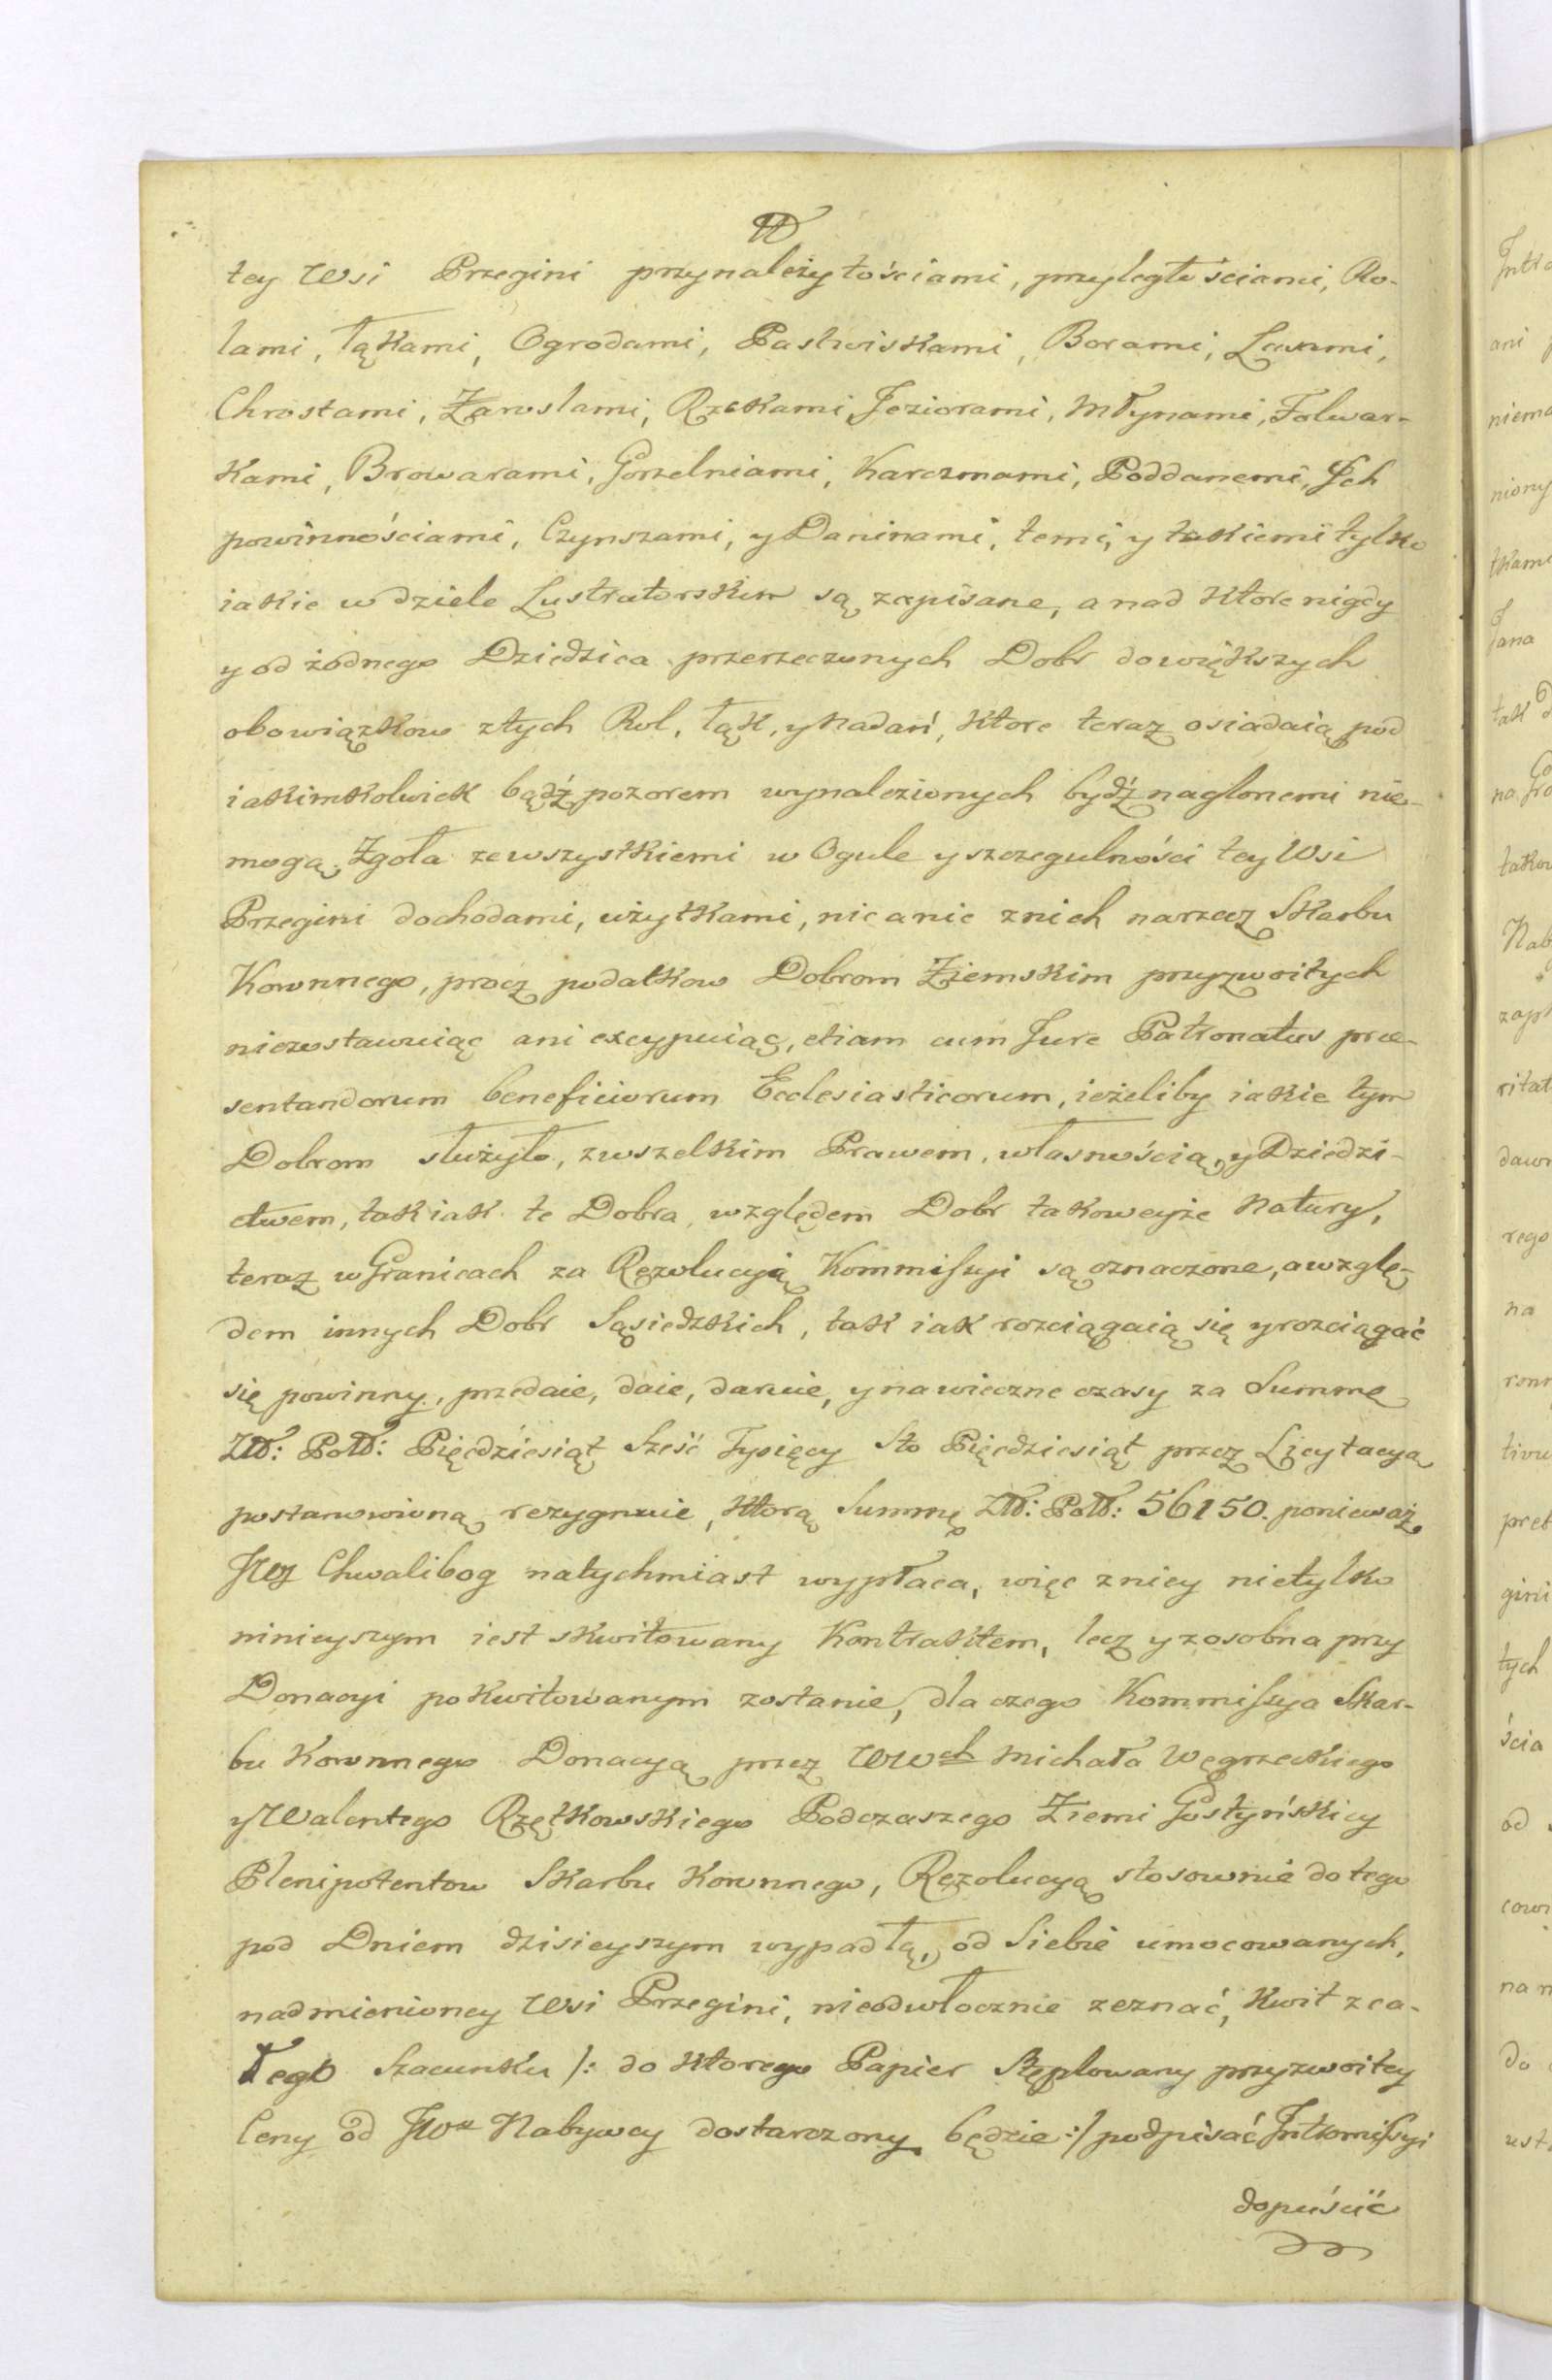 tey Wsi Przegini przynależytościami, przyległościami, Ro-
lami, łąkami, Ogrodami, Pastwiskami, Borami, Lasami,
Chrostami, Zaroslami, Rzekami Jeziorami, Młynami, Folwar-
kami, Browarami, Gorzelniami, Karczmami, Poddanemi, Ich
powinnościami, Czynszami, y Daninami, temi, y takiemi tylko
iakie w dziele Lustratorskim są zapisane, a nad ktore nigdy
y od żadnego Dziedzica przerzeczonych Dobr do większych
obowiązkow z tych Rol, łąk, y Nadań, ktore teraz osiadaią pod
iakimkolwiek bądź pozorem wynalezionych bydź naglonemi nie-
mogą, Zgoła ze wszystkiemi w Ogule y szczegulności tey Wsi
Przegini dochodami, użytkami, nic a nic z nich na rzecz Skarbu
Koronnego, procz podatkow Dobrom Ziemskim przyzwoitych
niezostawuiąc ani excypuiąc, etiam cum Jure Patronatus præ-
sentandorum beneficiorum Ecclesiasticorum, ieżeliby iakie tym
Dobrom służyło, z wszelkim Prawem, własnością, y Dziedzi-
ctwem, tak iak te Dobra, względem Dobr takoweyże Natury,
teraz w Granicach za Rezolucyią Kommissyi są oznaczone, a wzglę-
dem innych Dobr Sąsiedzkich, tak iak rozciągaią się y rozciągać
się powinny, przedaie, daie, daruie, y na wieczne czasy za Summę
Złł: Poll: Pięćdziesiąt Sześć Tysięcy Sto Pięćdziesiąt przez Licytacyą
postanowioną, rezygnuie, ktorą Summę Złł: Poll: 56150. ponieważ
JW Chwalibog natychmiast wypłaca, więc z niey nietylko
ninieyszym iest skwitowany Kontraktem, lecz y zosobna przy
Donacyi pokwitowanym zostanie, dla czego Kommissya Skar-
bu Koronnego Donacyą przez WWch Michała Węgrzeckiego
y Walentego Rzętkowskiego Podczaszego Ziemi Gostyńskiey
Plenipotentow Skarbu Koronnego, Rezolucyą stosownie do tego
pod Dniem dzisieyszym wypadłą, od Siebie umocowanych,
nadmienioney Wsi Przegini, nieodwłocznie zeznać, Kwit z ca-
łego Szacunku /: do ktorego Papier Stęplowany przyzwoitey
Ceny od JW Nabywcy dostarczony będzie :/ podpisać Intromissyi
dopuścić